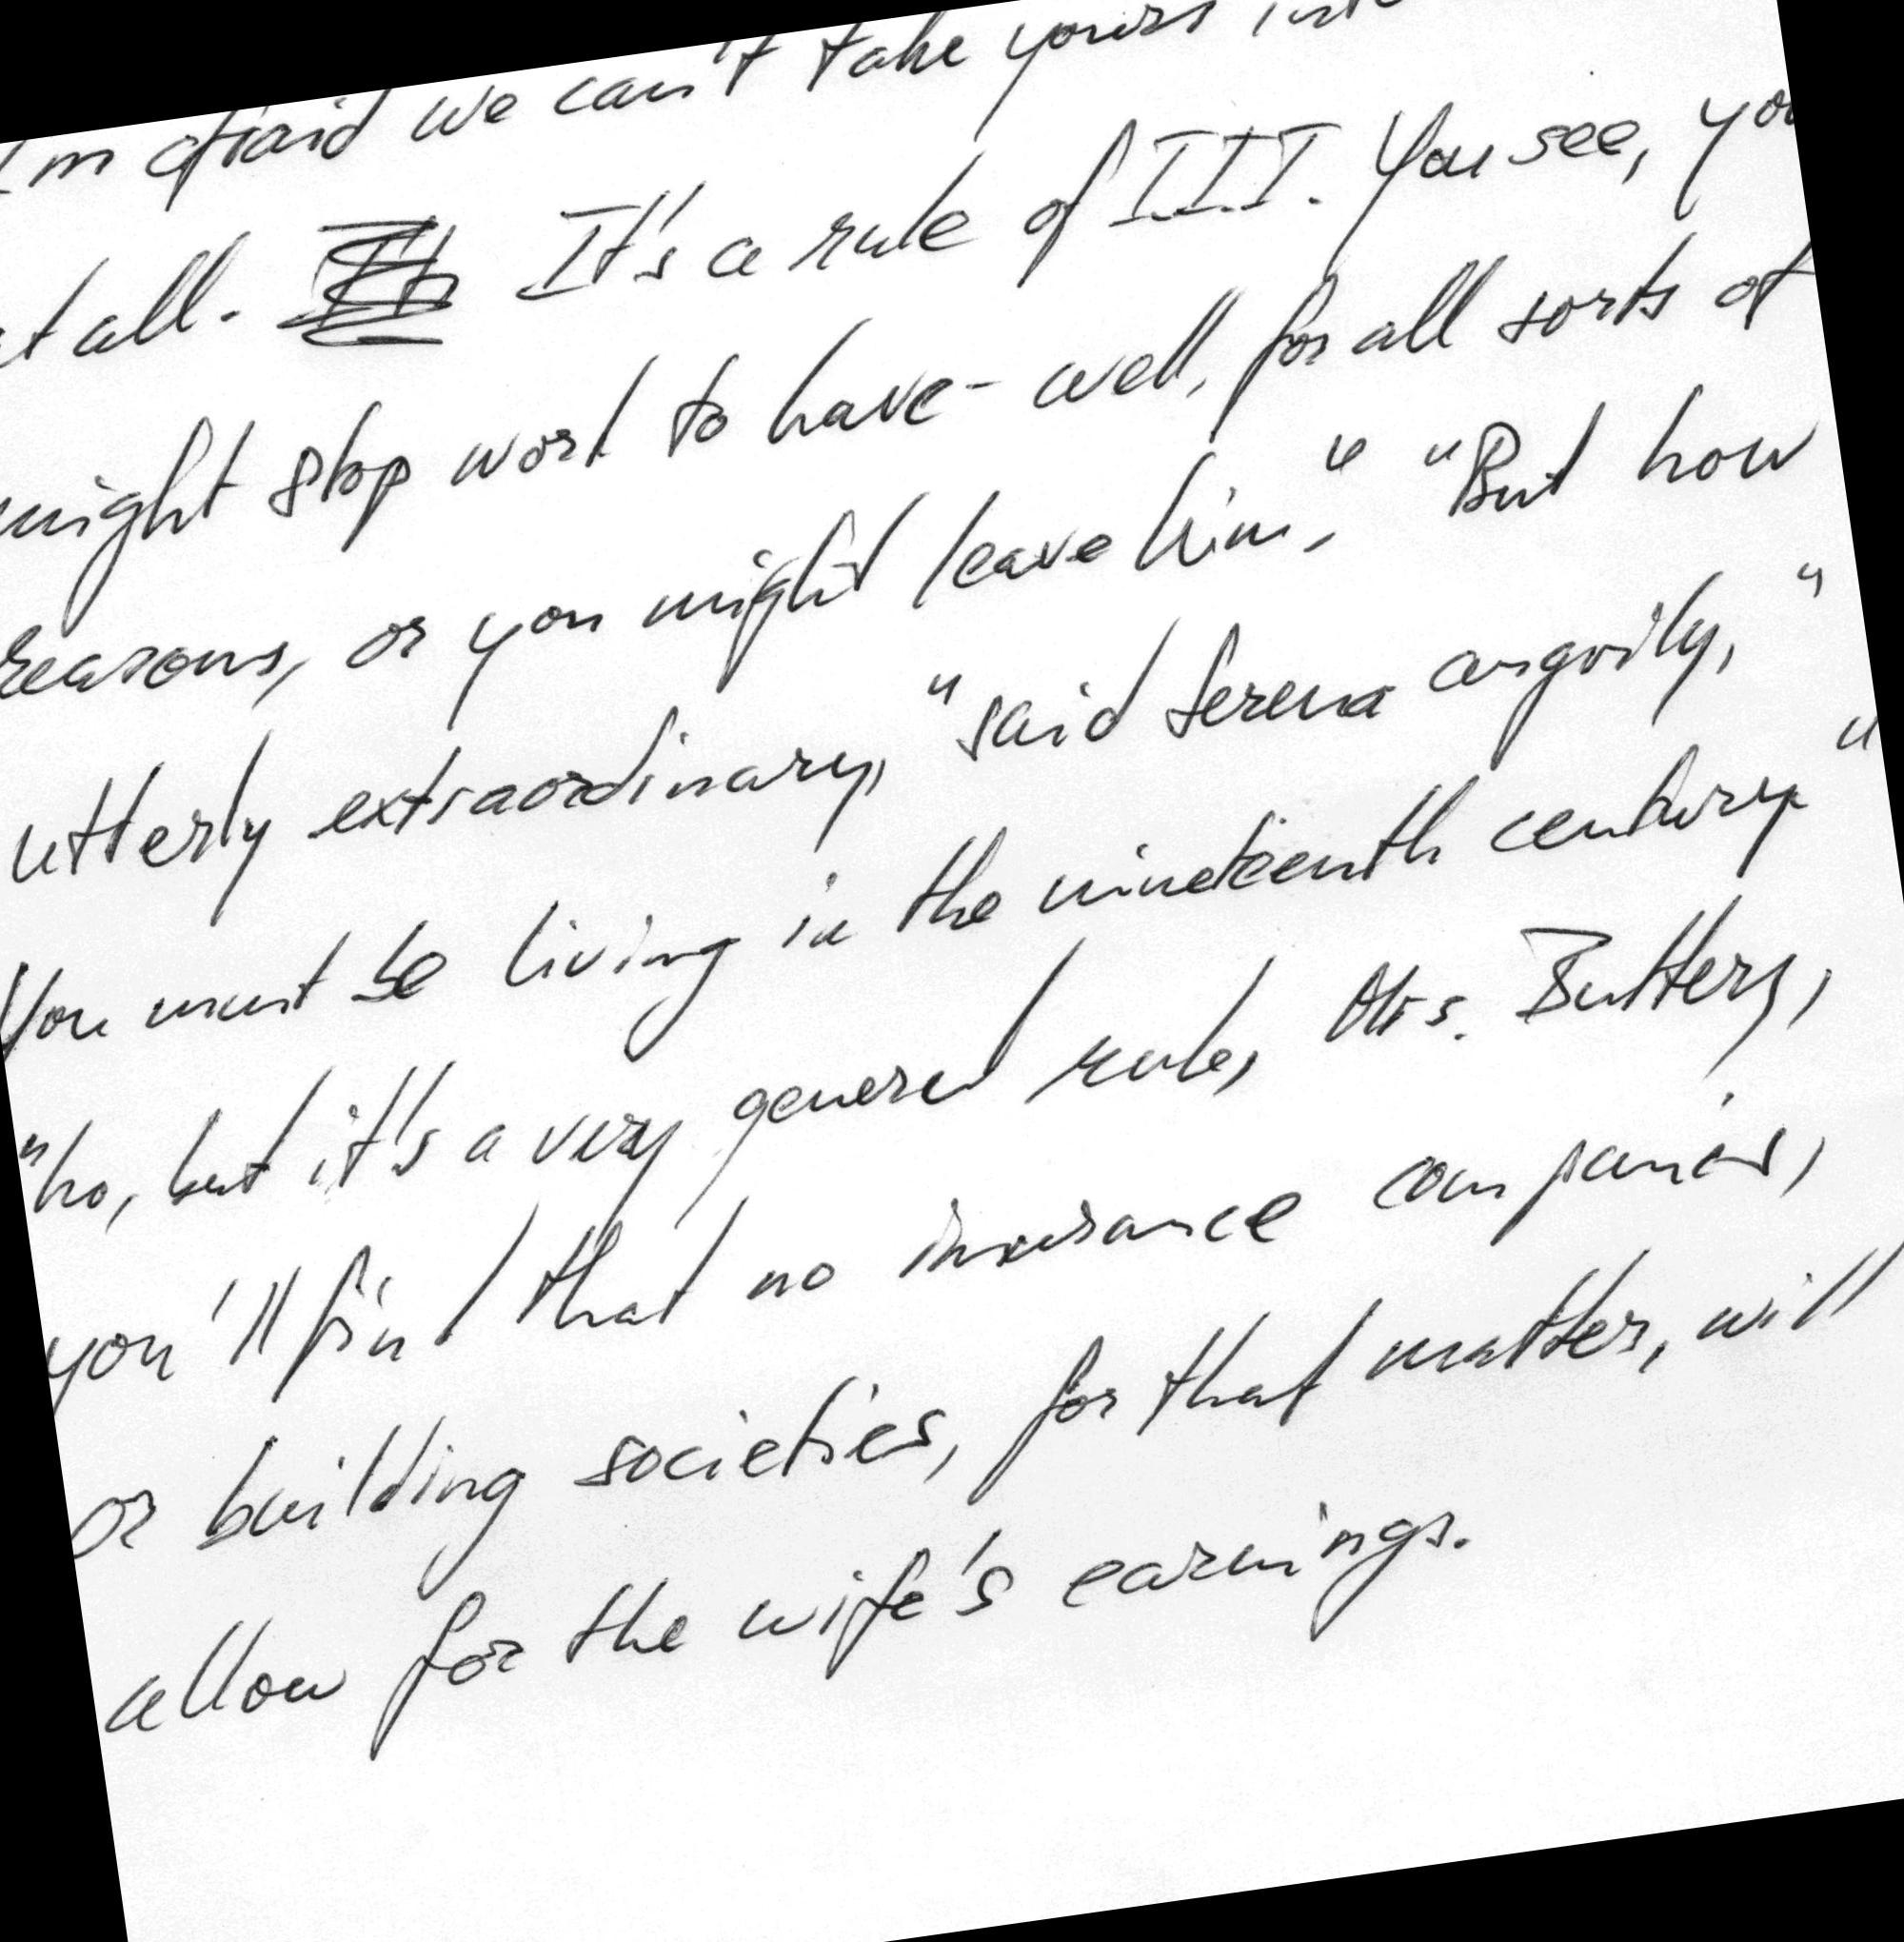 I'm afraid we can't take yours into
at all. It's a rule of III. You see, you
might stop work to have - well, for all sorts of
reasons, or you might leave him." "But how
utterly extraordinary," said Serena angrily, "
You must be living in the nineteenth century."
"No, but it's a very general rule, Mrs. Buttery,
you'll find that no insurance companies,
or building societies, for that matter, will
allow for the wife's earnings.